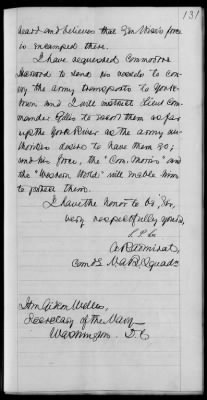 131
heard and believes that Gen Wise's force
is encamped there.
I have requested Commodore
Harwood to send his vessels to con-
voy the army transports to York-
town and I will instruct Lieut Com-
mander Gillis to escort them as far
up the York River as the army au-
thorities desire to have them go;
and his force, the "Com. Morris" and
the "Western World" will enable him
to protect them.
I have the honor to be, Sir,
very respectfully yours,
A R Admiral,
Comdg N A B Squadn
Hon Gideon Welles,
Secretary of the Navy
Washington D.C